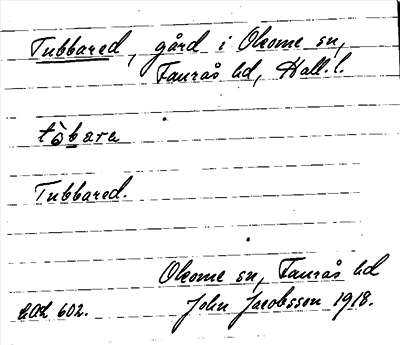 Tubbared, gård i Okome sn,
Faurås hd, Hall. l.
tòbara
Tubbared.
Okome sn, Faurås hd
202 602. John Jacobsson 1918.